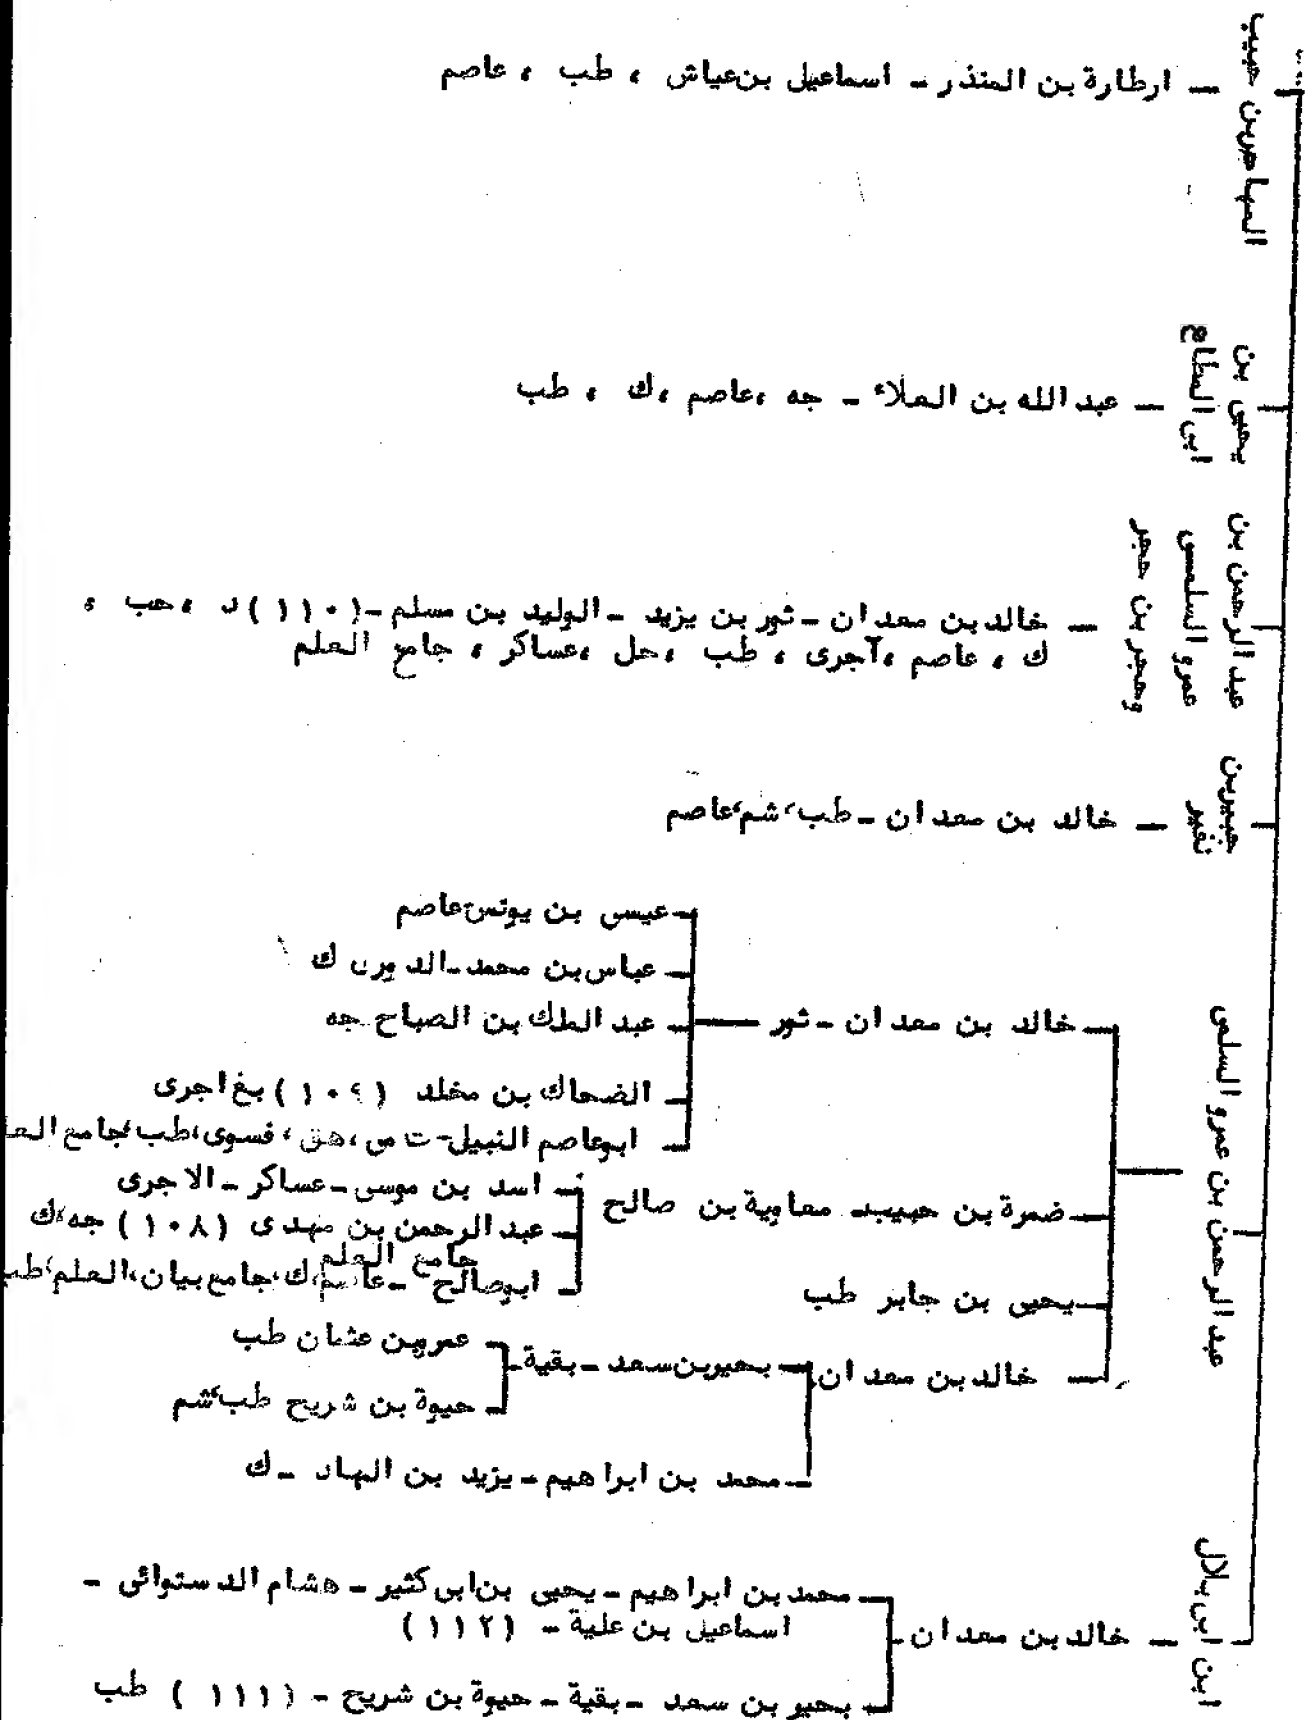 المهاجر بن حبيب
ارطارة بن المنذر - اسماعيل بن عياش ، طب ، عاصم
يحيى بن
ابى المطاع
عبد الله بن العلاء - جه ،عاصم ،ك ، طب
عبد الرحمن بن
عمرو السلمى
وحجر بن حجر
خالد بن معدان - ثور بن يزيد - الوليد بن مسلم - (١١٠) د ، حب ،
ك ، عاصم ،آجرى ، طب ،حل ،عساكر ، جامع العلم
جبير بن
نفير
خالد بن معدان - طب ،شم ،عاصم
عبد الرحمن بن عمرو السلمى
خالد بن معدان - ثور
عيسى بن يونس عاصم
عباس بن محمد - الدورى ك
عبد الملك بن الصباح جه
الضحاك بن مخلد (١٠٩) بغ اجرى
ابوعاصم النبيل - ت مى ،هق ، فسوى ،طب ،جامع العلـ
ضمرة بن حبيب - معاوية بن صالح
اسد بن موسى - عساكر - الاجرى
عبد الرحمن بن مهدى (١٠٨) جه ،ك
جامع العلم
ابوصالح - عاصم ،ك ،جامع بيان ،العلم ،طب
يحيى بن جابر طب
خالد بن معدان
بحير بن سعد - بقية
عمرو بن عثمان طب
حيوة بن شريح طب ،شم
محمد بن ابراهيم - يزيد بن الهاد - ك
ابن ابى بلال
خالد بن معدان
محمد بن ابراهيم - يحيى بن ابى كثير - هشام الدستوائى -
اسماعيل بن علية - (١١٢)
بحير بن سعد - بقية - حيوة بن شريح - (١١١) طب